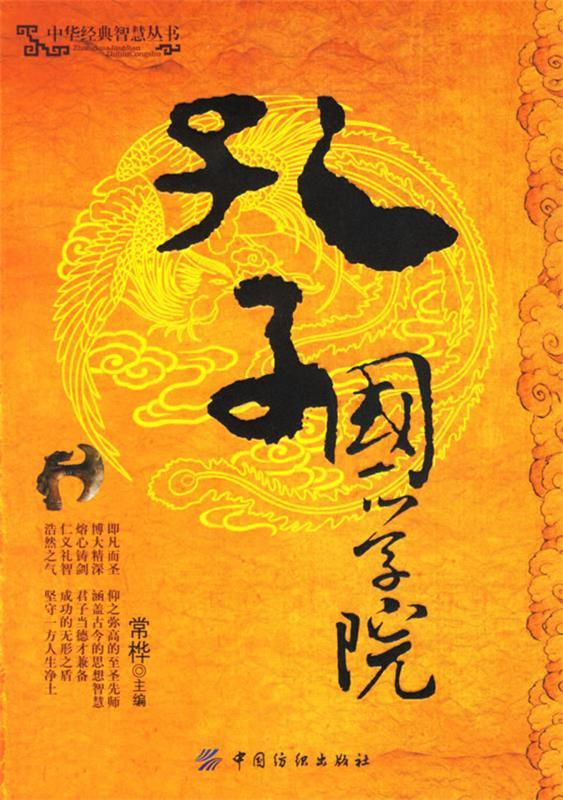 中华经典智慧丛书
ZhonghuaJingdian
ZhihuiCongshu
孔子
國学院
即凡而圣 仰之弥高的至圣先师
博大精深 涵盖古今的思想智慧
熔心铸剑 君子当德才兼备
仁义礼智 成功的无形之盾
浩然之气 坚守一方人生净土
常桦◎主编
中国纺织出版社